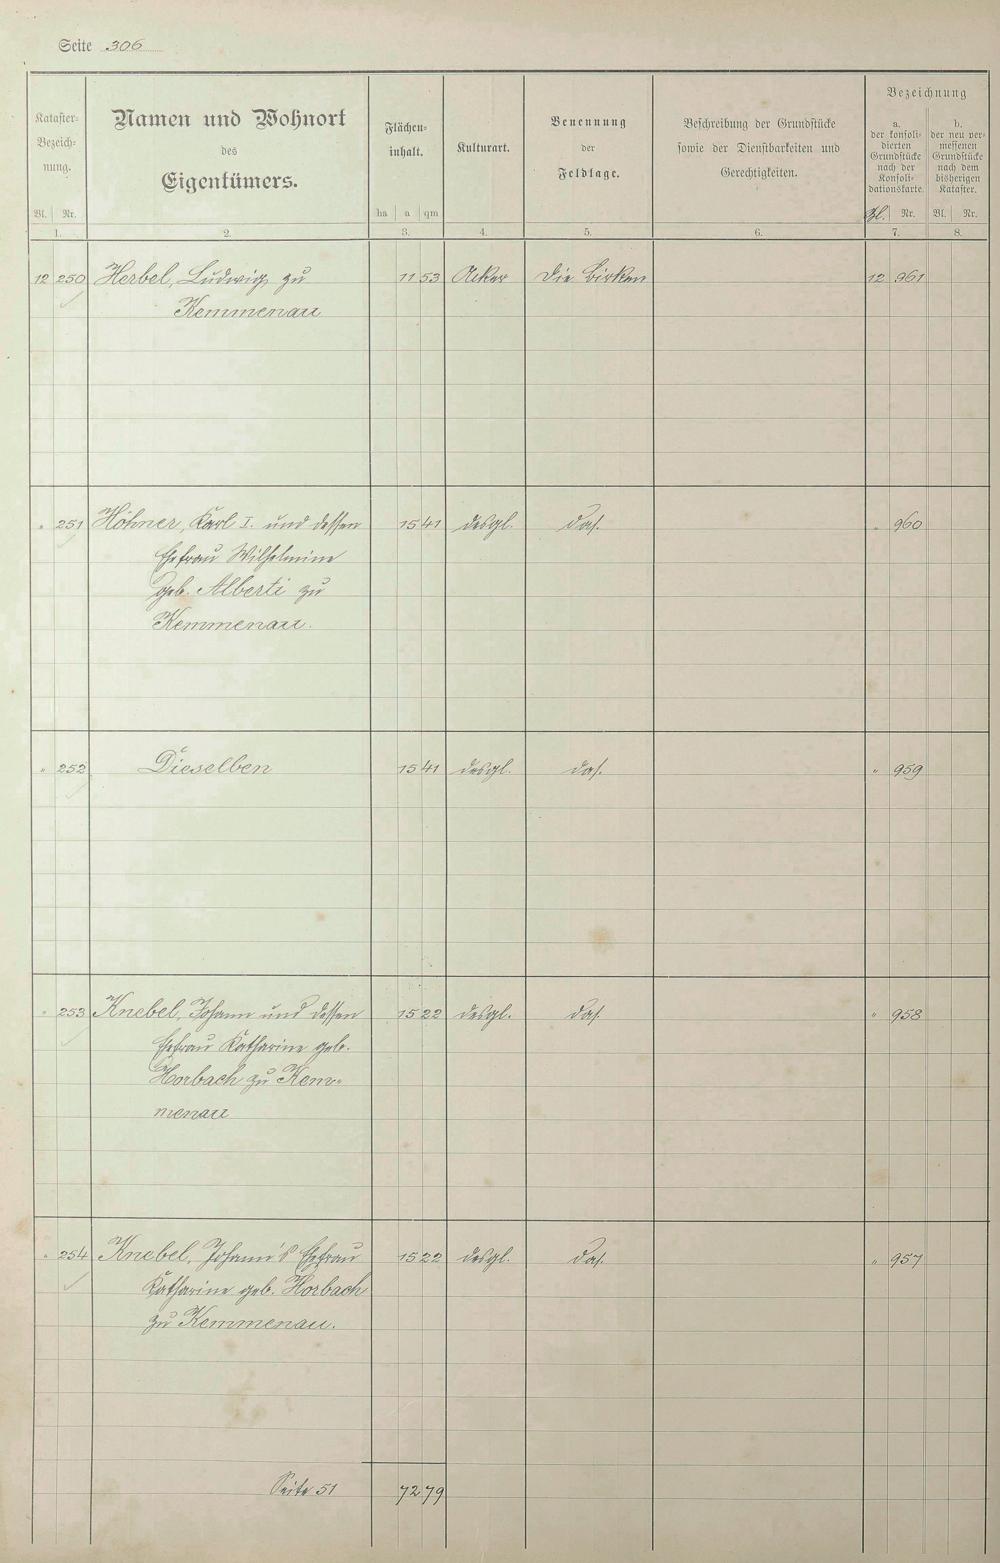 Seite 306
Kataster-
Bezeich-
nung.
Bl. Nr.
1.
Namen und Wohnort
des
Eigentümers.
2.
Flächen-
inhalt.
ha a qm
3.
Kulturart.
4.
Benennung
der
Feldlage.
5.
Beschreibung der Grundstücke
sowie der Dienstbarkeiten und
Gerechtigkeiten.
6.
Bezeichnung
a.
der konsoli-
dierten
Grundstücke
nach der
Konsoli-
dationskarte.
Bl. Nr.
7.
b.
der neu ver-
messenen
Grundstücke
nach dem
bisherigen
Kataster.
Bl. Nr.
8.
12 250 Herbel, Ludwig zu 11 53 Acker Die Birken 12 961
Kemmenau
" 251 Höhner, Karl I. und dessen 15 41 desgl. das. " 960
Ehefrau Wilhelmine
geb. Alberti zu
Kemmenau.
" 252 Dieselben 15 41 desgl. das. " 959
" 253 Knebel, Johann und dessen 15 22 desgl. das. " 958
Ehefrau Katharine geb.
Horbach zu Kem-
menau
" 254 Knebel, Johann's Ehefrau 15 22 desgl. das. " 957
Katharine geb. Horbach
zu Kemmenau.
Seite 51 72 79